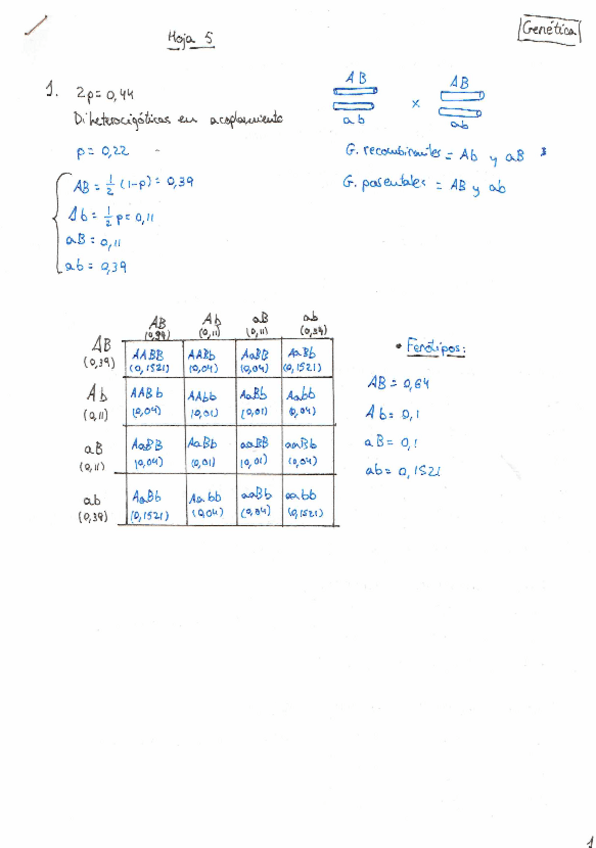 Genética
Hoja 5
1. 2p = 0,44
Diheterocigóticas en acoplamiento
p = 0,22
AB = 1/2 (1-p) = 0,39
Ab = 1/2 p = 0,11
aB = 0,11
ab = 0,39
AB AB
x
ab ab
G. recombinantes = Ab y aB
G. parentales = AB y ab
AB Ab aB ab
(0,11) (0,11) (0,39)
AB (0,39) AABB (0,1521) AABb (0,04) AaBB (0,04) AaBb (0,1521)
Ab (0,11) AABb (0,04) AAbb (0,01) AaBb (0,01) Aabb (0,04)
aB (0,11) AaBB (0,04) AaBb (0,01) aaBB (0,01) aaBb (0,04)
ab (0,39) AaBb (0,1521) Aabb (0,04) aaBb (0,04) aabb (0,1521)
• Fenótipos:
AB = 0,64
Ab = 0,1
aB = 0,1
ab = 0,1521
1